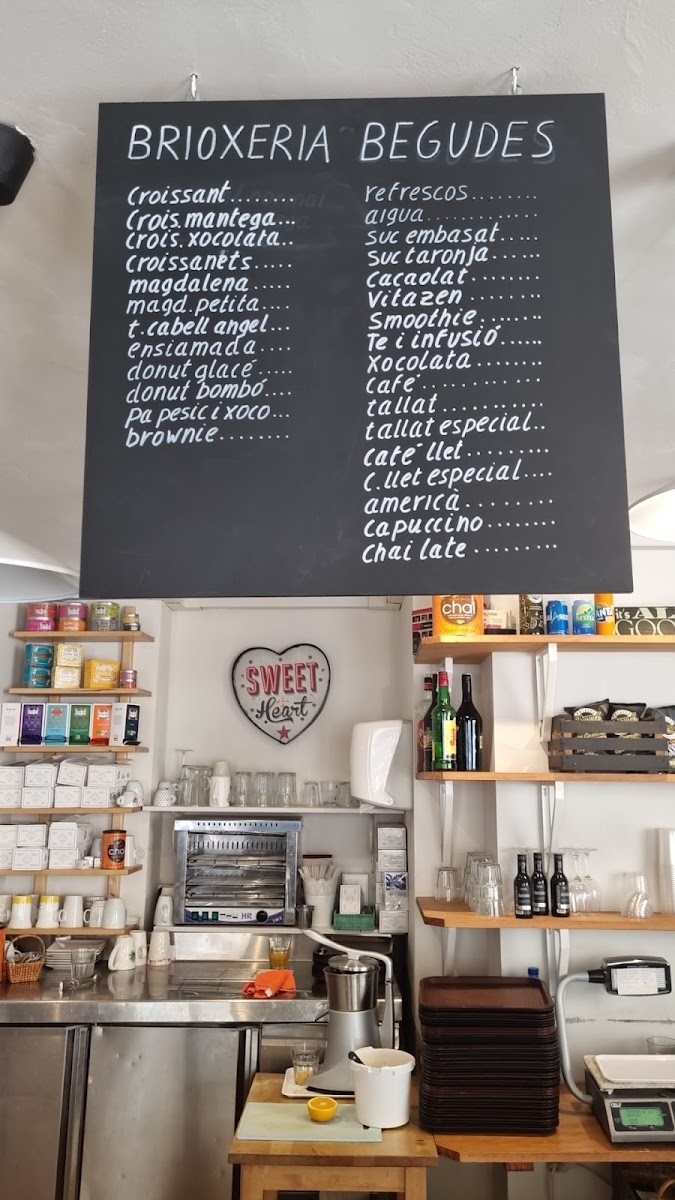 BRIOXERIA
croissant........
Crois.mantega...
Crois.xocolata..
croissanets.....
magdalena.....
magd.petita....
t.cabell angel...
ensiamada.....
donut glacé.....
donut bombó....
pa pesic i xoco...
brownie........
BEGUDES
refrescos........
aigua.............
suc embasat.....
suc taronja......
cacaolat........
vitazen........
smoothie.......
Te i infusió......
xocolata........
café............
tallat............
tallat especial..
café llet.........
c.llet especial....
americà.........
capuccino.......
chai late.........
chai
SWEET
Heart
chai
HR